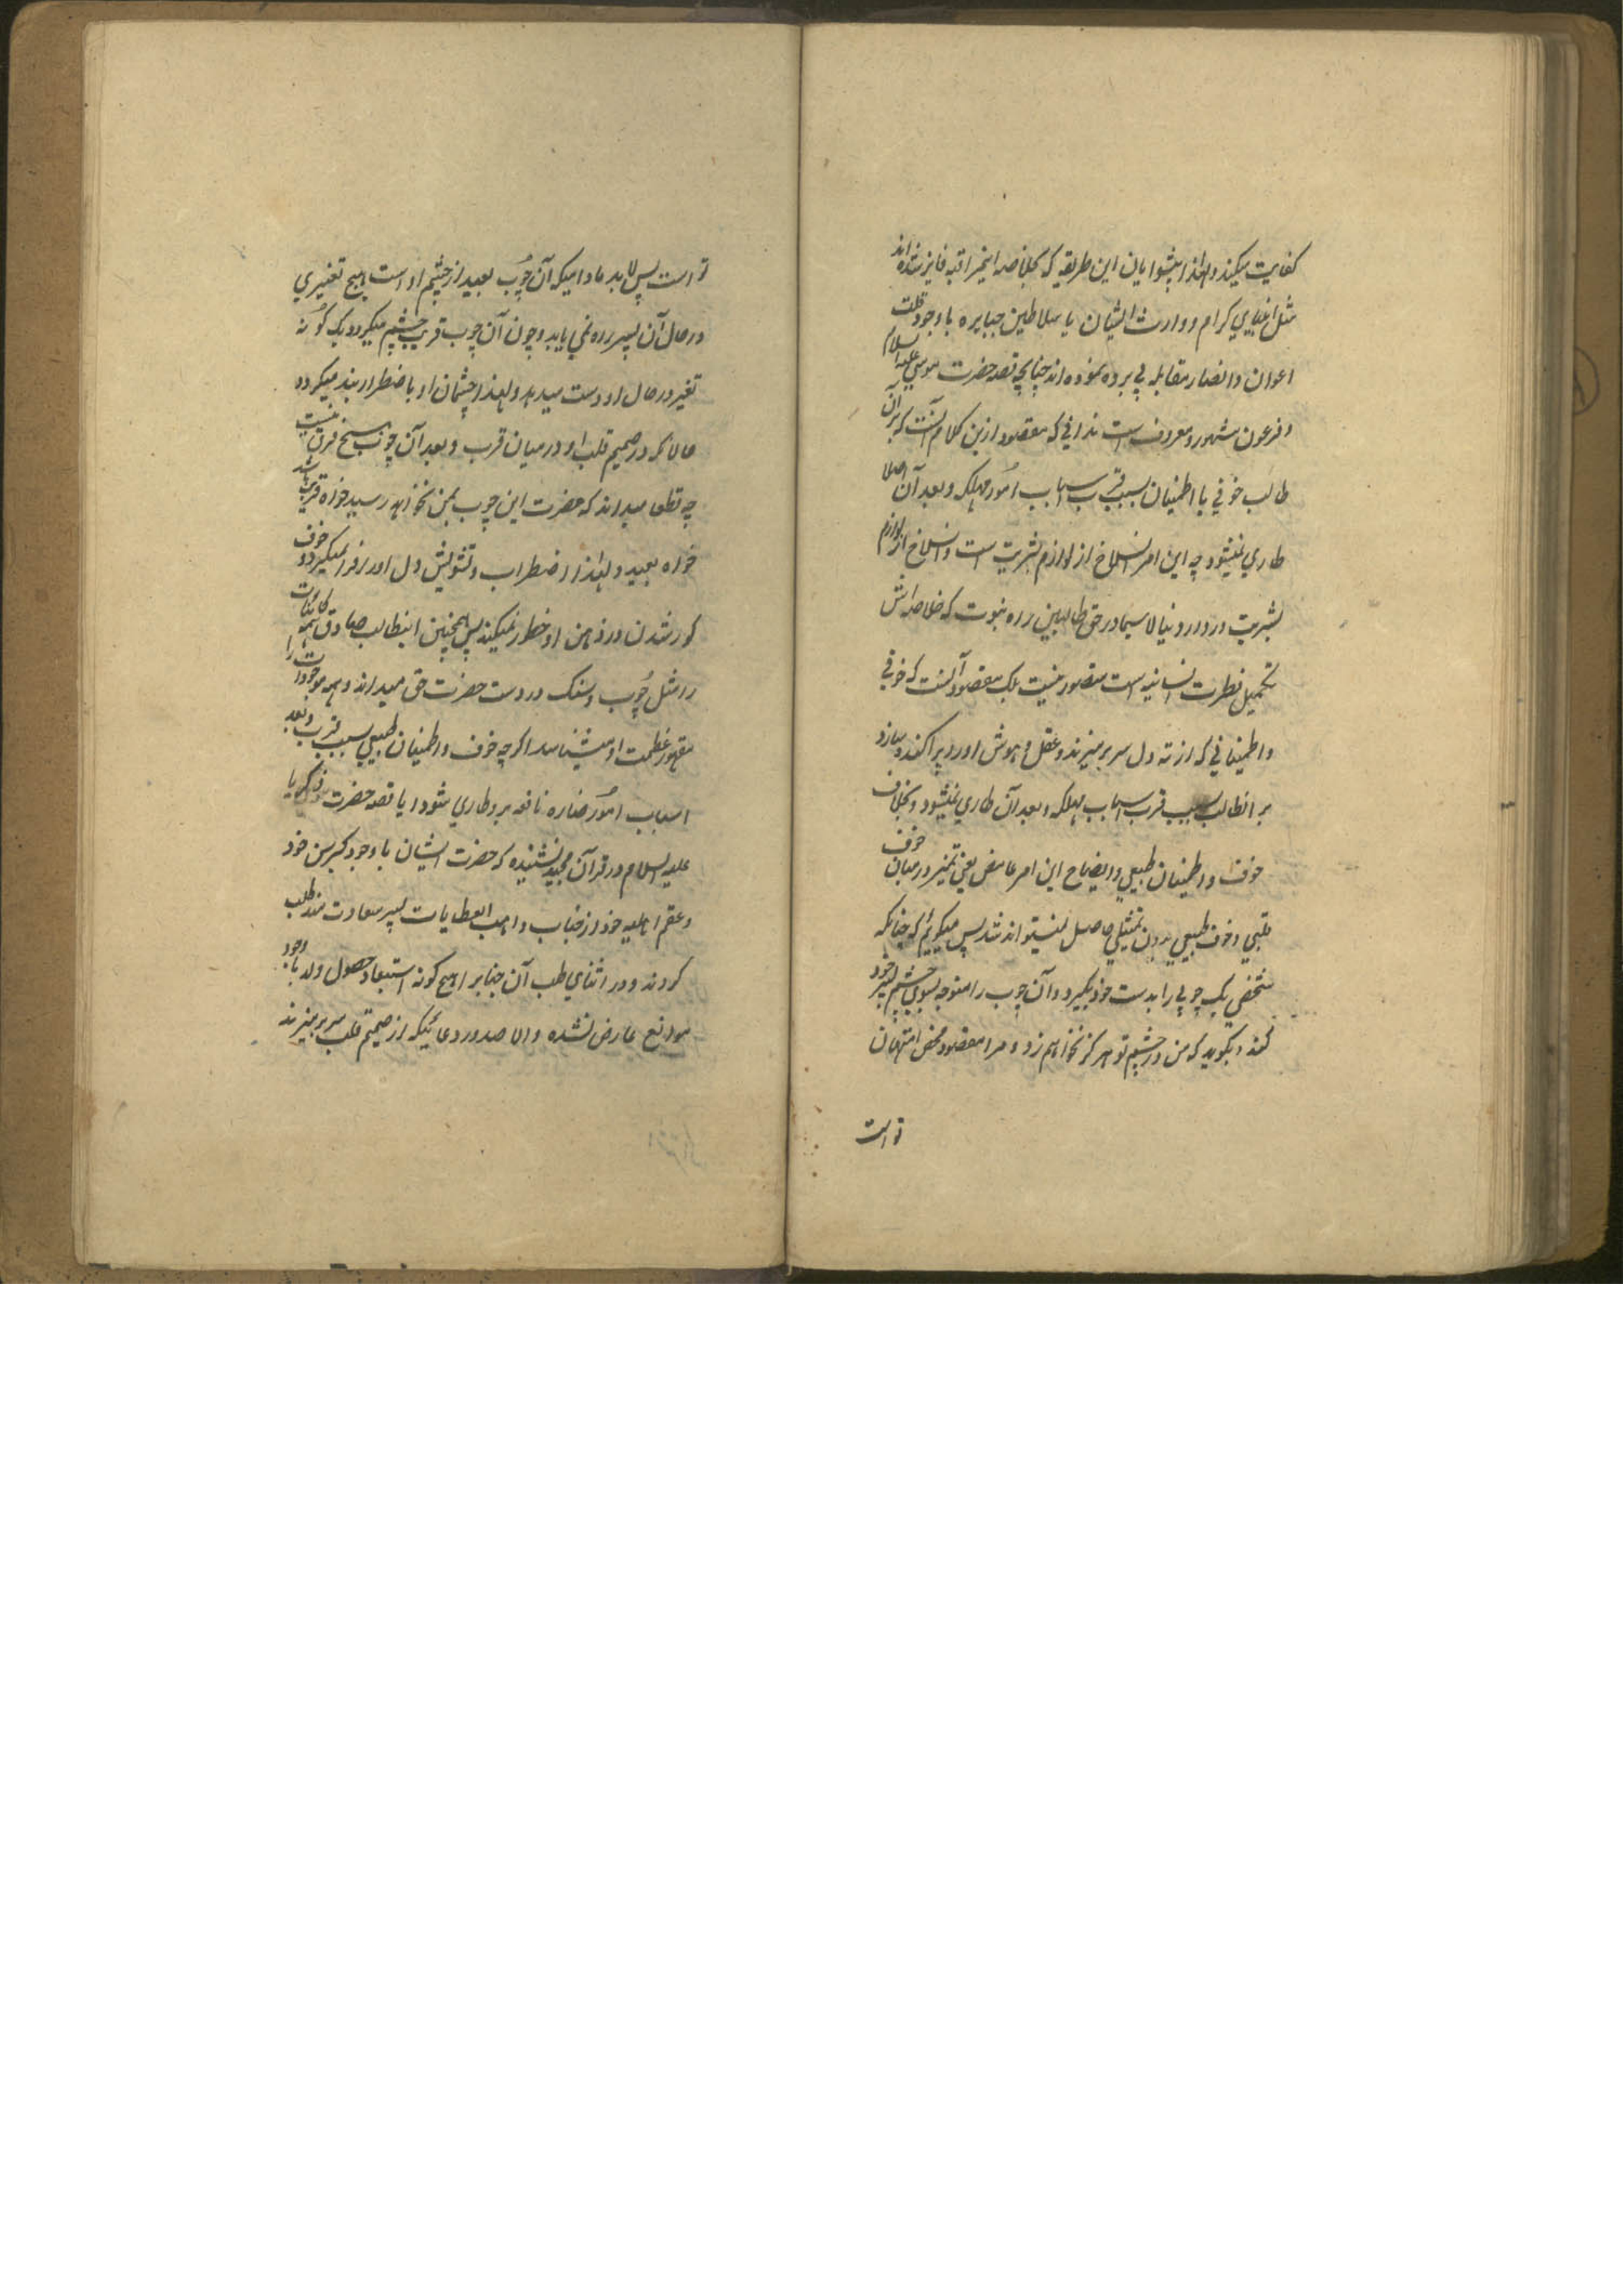 کفایت میکند ولهذا پیشوایان این طریقه که بخلاصه اینمراقبه فایز شده‌اند
مثل انبیای کرام و وارث ایشان با سلاطین جبابره با وجود قلت
اعوان و انصار مقابله بی پرده نموده اند چنانچه قصه حضرت موسی علیه السلام
و فرعون مشهور و معروف است ندانی که مقصود ازین کلام آنست که بر آن
طالب خوفی یا اطمینان بسبب قرب اسباب امور مهلکه و بعد آن اصلا
طاری نمیشود چه این امر انسلاخ از لوازم بشریت است و انسلاخ از لوازم
بشریت در دار دنیا لا سیما در حق طالبین راه نبوت که خلاصه اش
تکمیل فطرت انسانیه است متصور نیست بلکه مقصود آنست که خوفی
و اطمینانی که از ته دل سر بر میزند و عقل و هوش او را پراکنده میسازد
بر انطالب بسبب قرب اسباب مهلکه و بعد آن طاری نمیشود و بخلاف
خوف و اطمینان طبیعی و ایضاح این امر غامض یعنی تمیز در میان خوف
قلبی و خوف طبیعی بدون تمثیلی حاصل نمیتواند شد پس میگوئیم که چنانکه
شخصی یک چوبی را بدست خود بگیرد و آن چوب را متوجه بسوی چشم پسر خود
کند و بگوید که من در چشم تو هرگز نخواهم زد و مرا مقصود محض امتحان
تو است
تو است پس لابد مادامیکه آن چوب بعید از چشم او است هیچ تغیری
در حال آن پسر راه نمی یابد و چون آن چوب قریب چشم میگردد یک گونه
تغیر در حال او دست میدهد ولهذا چشمان او با ضطرار بند میگردد
حالانکه در صمیم قلب او در میان قرب و بعد آن چوب هیچ فرق نیست
چه قطعا میداند که مضرت این چوب بمن نخواهد رسید خواه قریب باشد
خواه بعید ولهذا اضطراب و تشویش دل او را فرا نمیگیرد و خوف
کور شدن در ذهن او خطور نمیکند پس همچنین اینطالب صادق همه کاینات
را مثل چوب و سنگ در دست حضرت حق میداند و همه موجودات را
مقهور عظمت او میشناسد اگرچه خوف و اطمینان طبیعی بسبب قرب و بعد
اسباب امور ضاره نافعه برو طاری شود ایا قصه حضرت زکریا
علیه السلام در قرآن مجید نشنیده که حضرت ایشان با وجود کبر سن خود
و عقم اهلیه خود از جناب واهب العطایات پسر سعادت مند طلب
کردند و در اثنای طلب آن جناب را هیچ گونه استبعاد حصول ولد باوجود
موانع عارض نشده والا صدور دعائیکه از صمیم قلب سر بر میزند